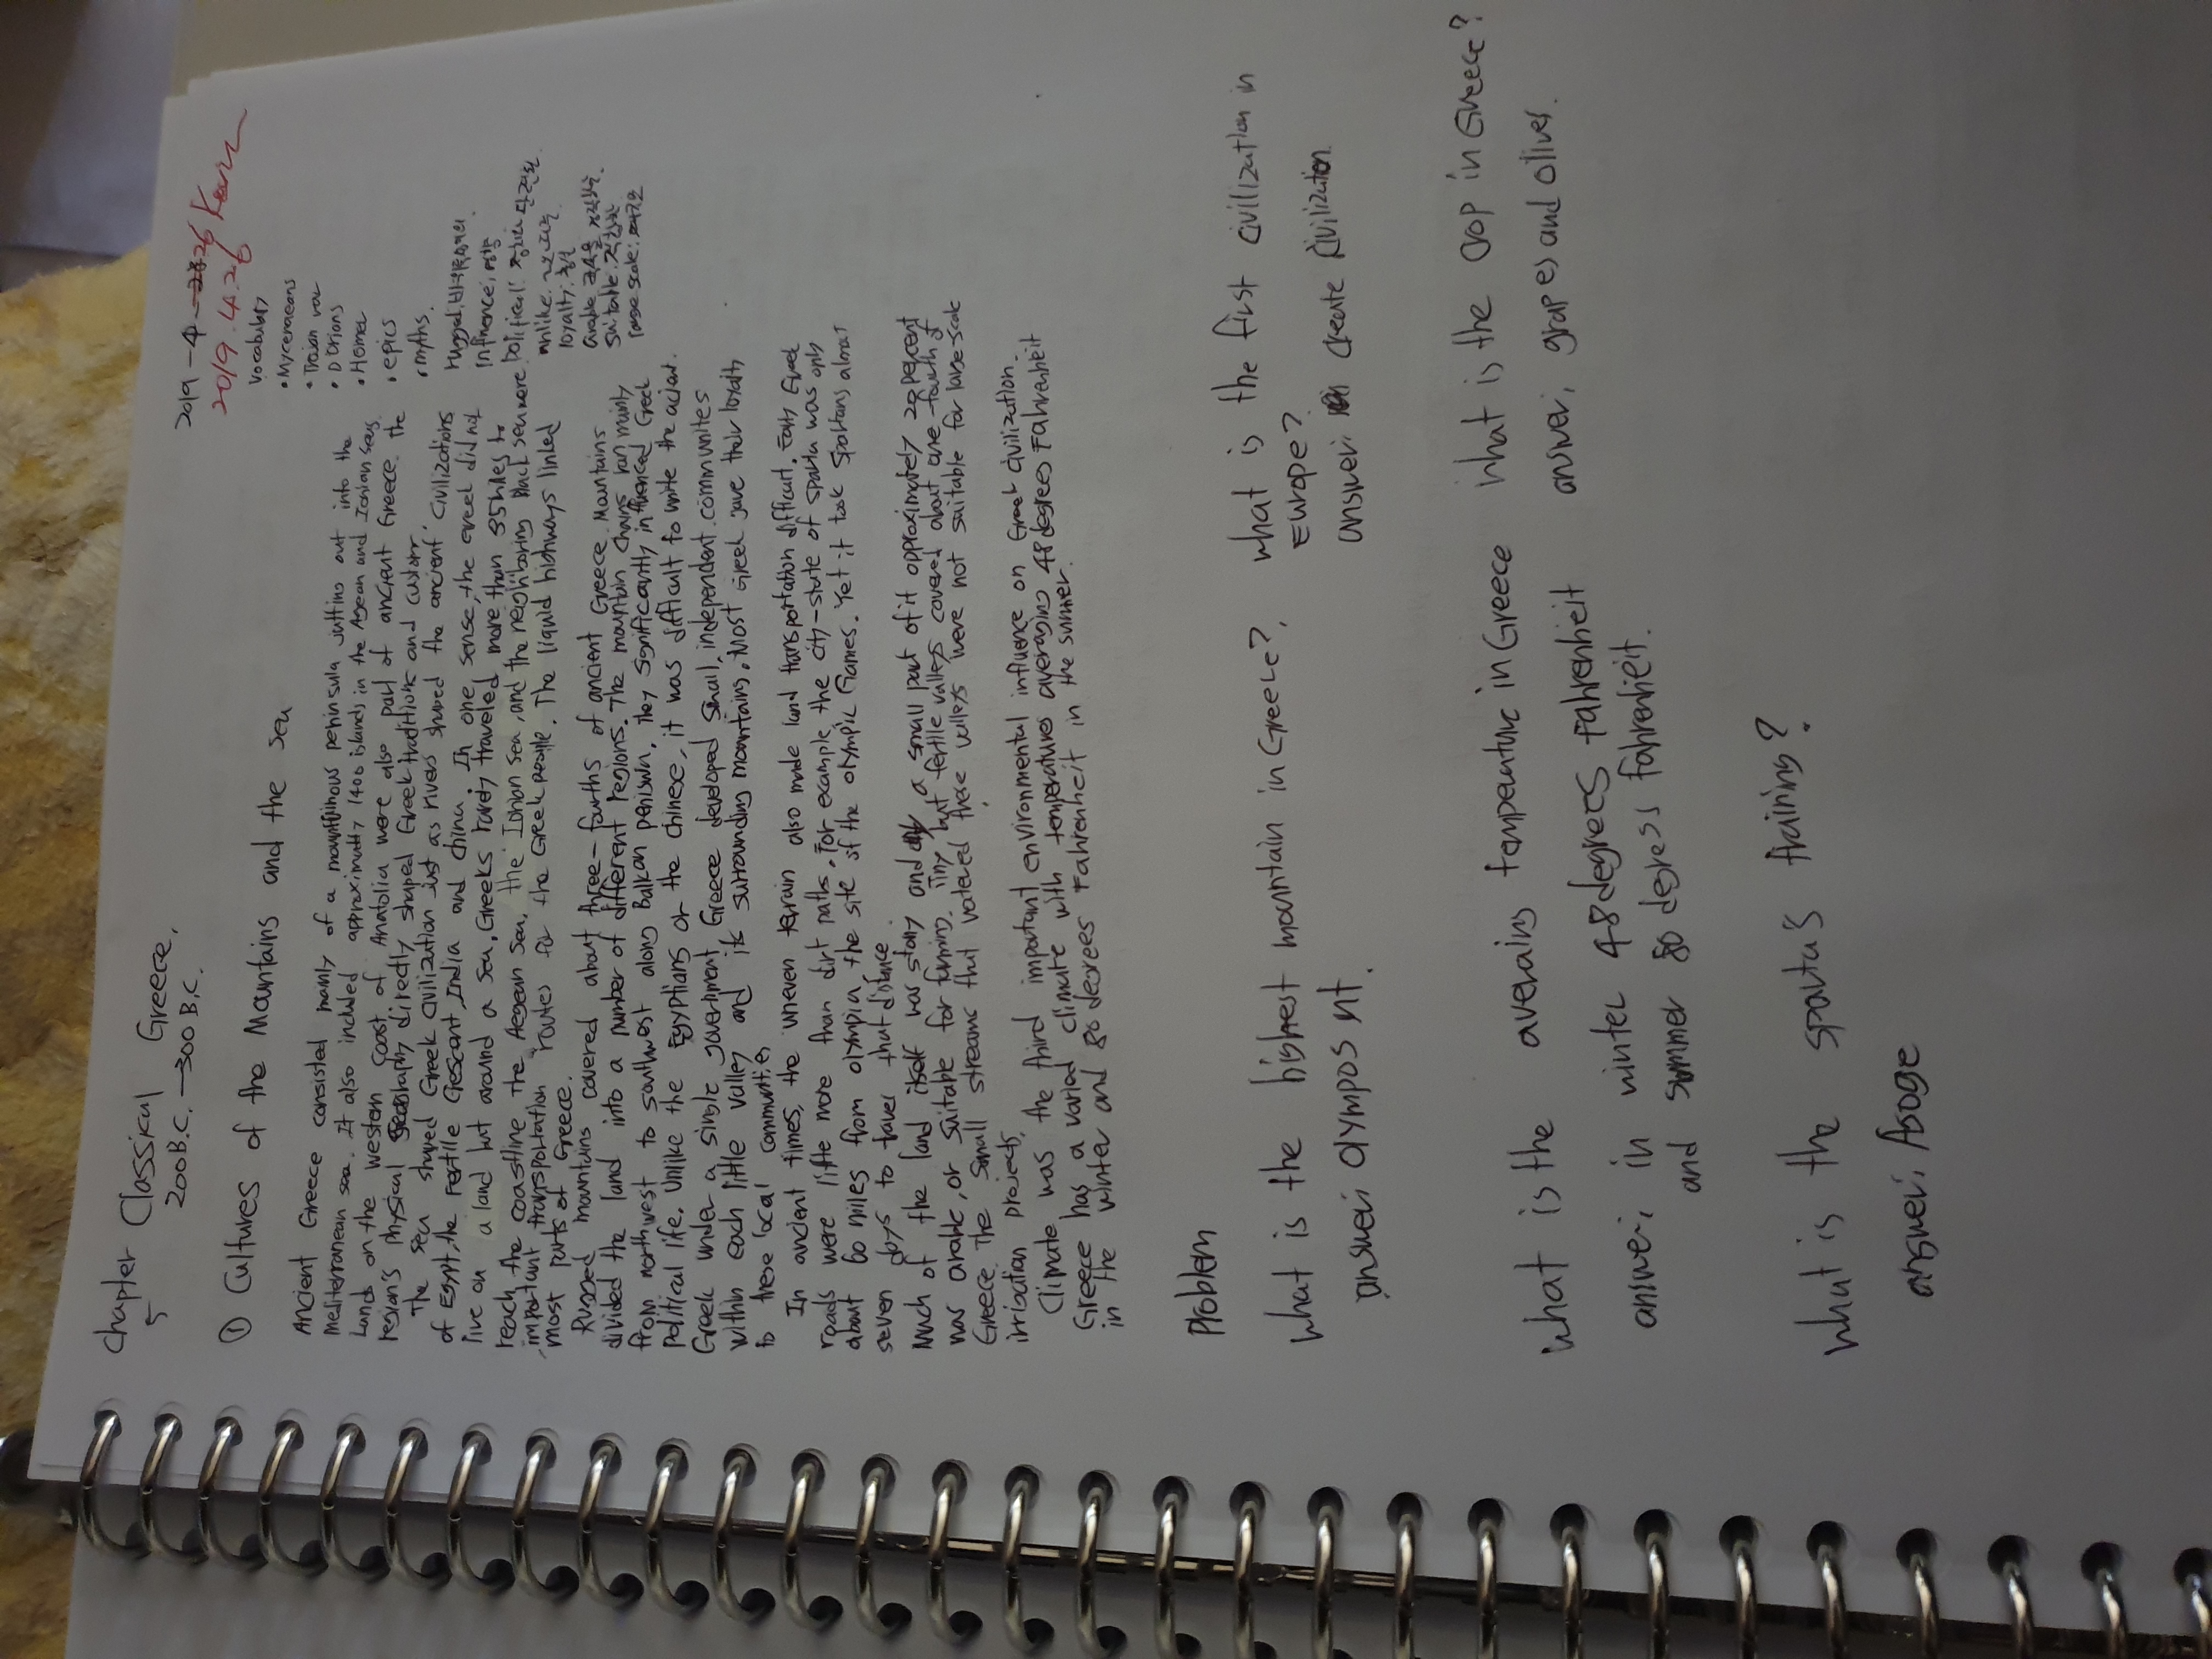 2019 - 4 - 26
2019. 4. 26
chapter Classical Greece,
5 200B.C. - 300 B.C.
① Cultures of the Mountains and the Sea
Vocabulary
• Myceraeans
• Trojan war
• Dorians
• Homer
• epics
• myths.
rugged:
influence: 영향
Political:
unlike:
loyalty: 충성
arable
suitable: 적합한
large scale:
Ancient Greece consisted mainly of a mountainous peninsula jutting out into the
Mediterranean sea. It also included approximatly 1400 islands in the Agean and Ionian Seas
Lands on the western Coast of Anatolia were also part of ancient Greece. the
region's physical geography directly shaped Greek traditions and custom.
The sea shaped Greek civilization just as rivers shaped the ancient civilizations
of Egypt, the Fertile Crescent, India and china. In one sense, the Greek did not
live on a land but around a sea. Greeks rarely traveled more than 85 miles to
reach the coastline the Aegean Sea, the Ionian Sea, and the neighboring Black sea were
important transportation routes for the Greek people. The liquid highways linked
most parts of Greece.
Rugged mountains covered about three-fourths of ancient Greece. Mountains
divided the land into a number of different regions. The mountain chains ran mainly
from northwest to southwest along Balkan They significantly influenced Greek
Political life. Unlike the Egyptians or the Chinese, it was difficult to unite the acient
Greek under a single government Greece developed small, independent communites
within each little valley and its surrounding mountains. Most Greek gave their loyalty
to these local communities
In ancient times, the uneven terrain also made land transportation difficult. Early Greek
roads were little more than dirt paths. For example the city-state of Sparta was only
about 60 miles from Olympia the site of the Olympic Games. Yet it took Spartans almost
seven days to travel that distance
Much of the land itself was stony and a small part of it approximately 20 percent
was arable, or suitable for farming. Tiny but fertile valleys covered about one-fourth of
Greece. The small streams that watered these valleys were not suitable for large-scale
irrigation projects.
Climate was the third important environmental influence on Greek civilization.
Greece has a varied climate with temperatures averaging 48 degrees Fahrenheit
in the winter and 80 degrees Fahrenheit in the summer.
Problem
What is the highest mountain in Greece?
answer: Olympos mt.
what is the first civilization in
Europe?
answer: create civilization
What is the averaing temperature in Greece
answer: in winter 48 degrees Fahrenheit
and summer 80 degress fahrenheit.
what is the crop in Greece?
answer: grapes and olives.
What is the spartas training?
answer: Agoge